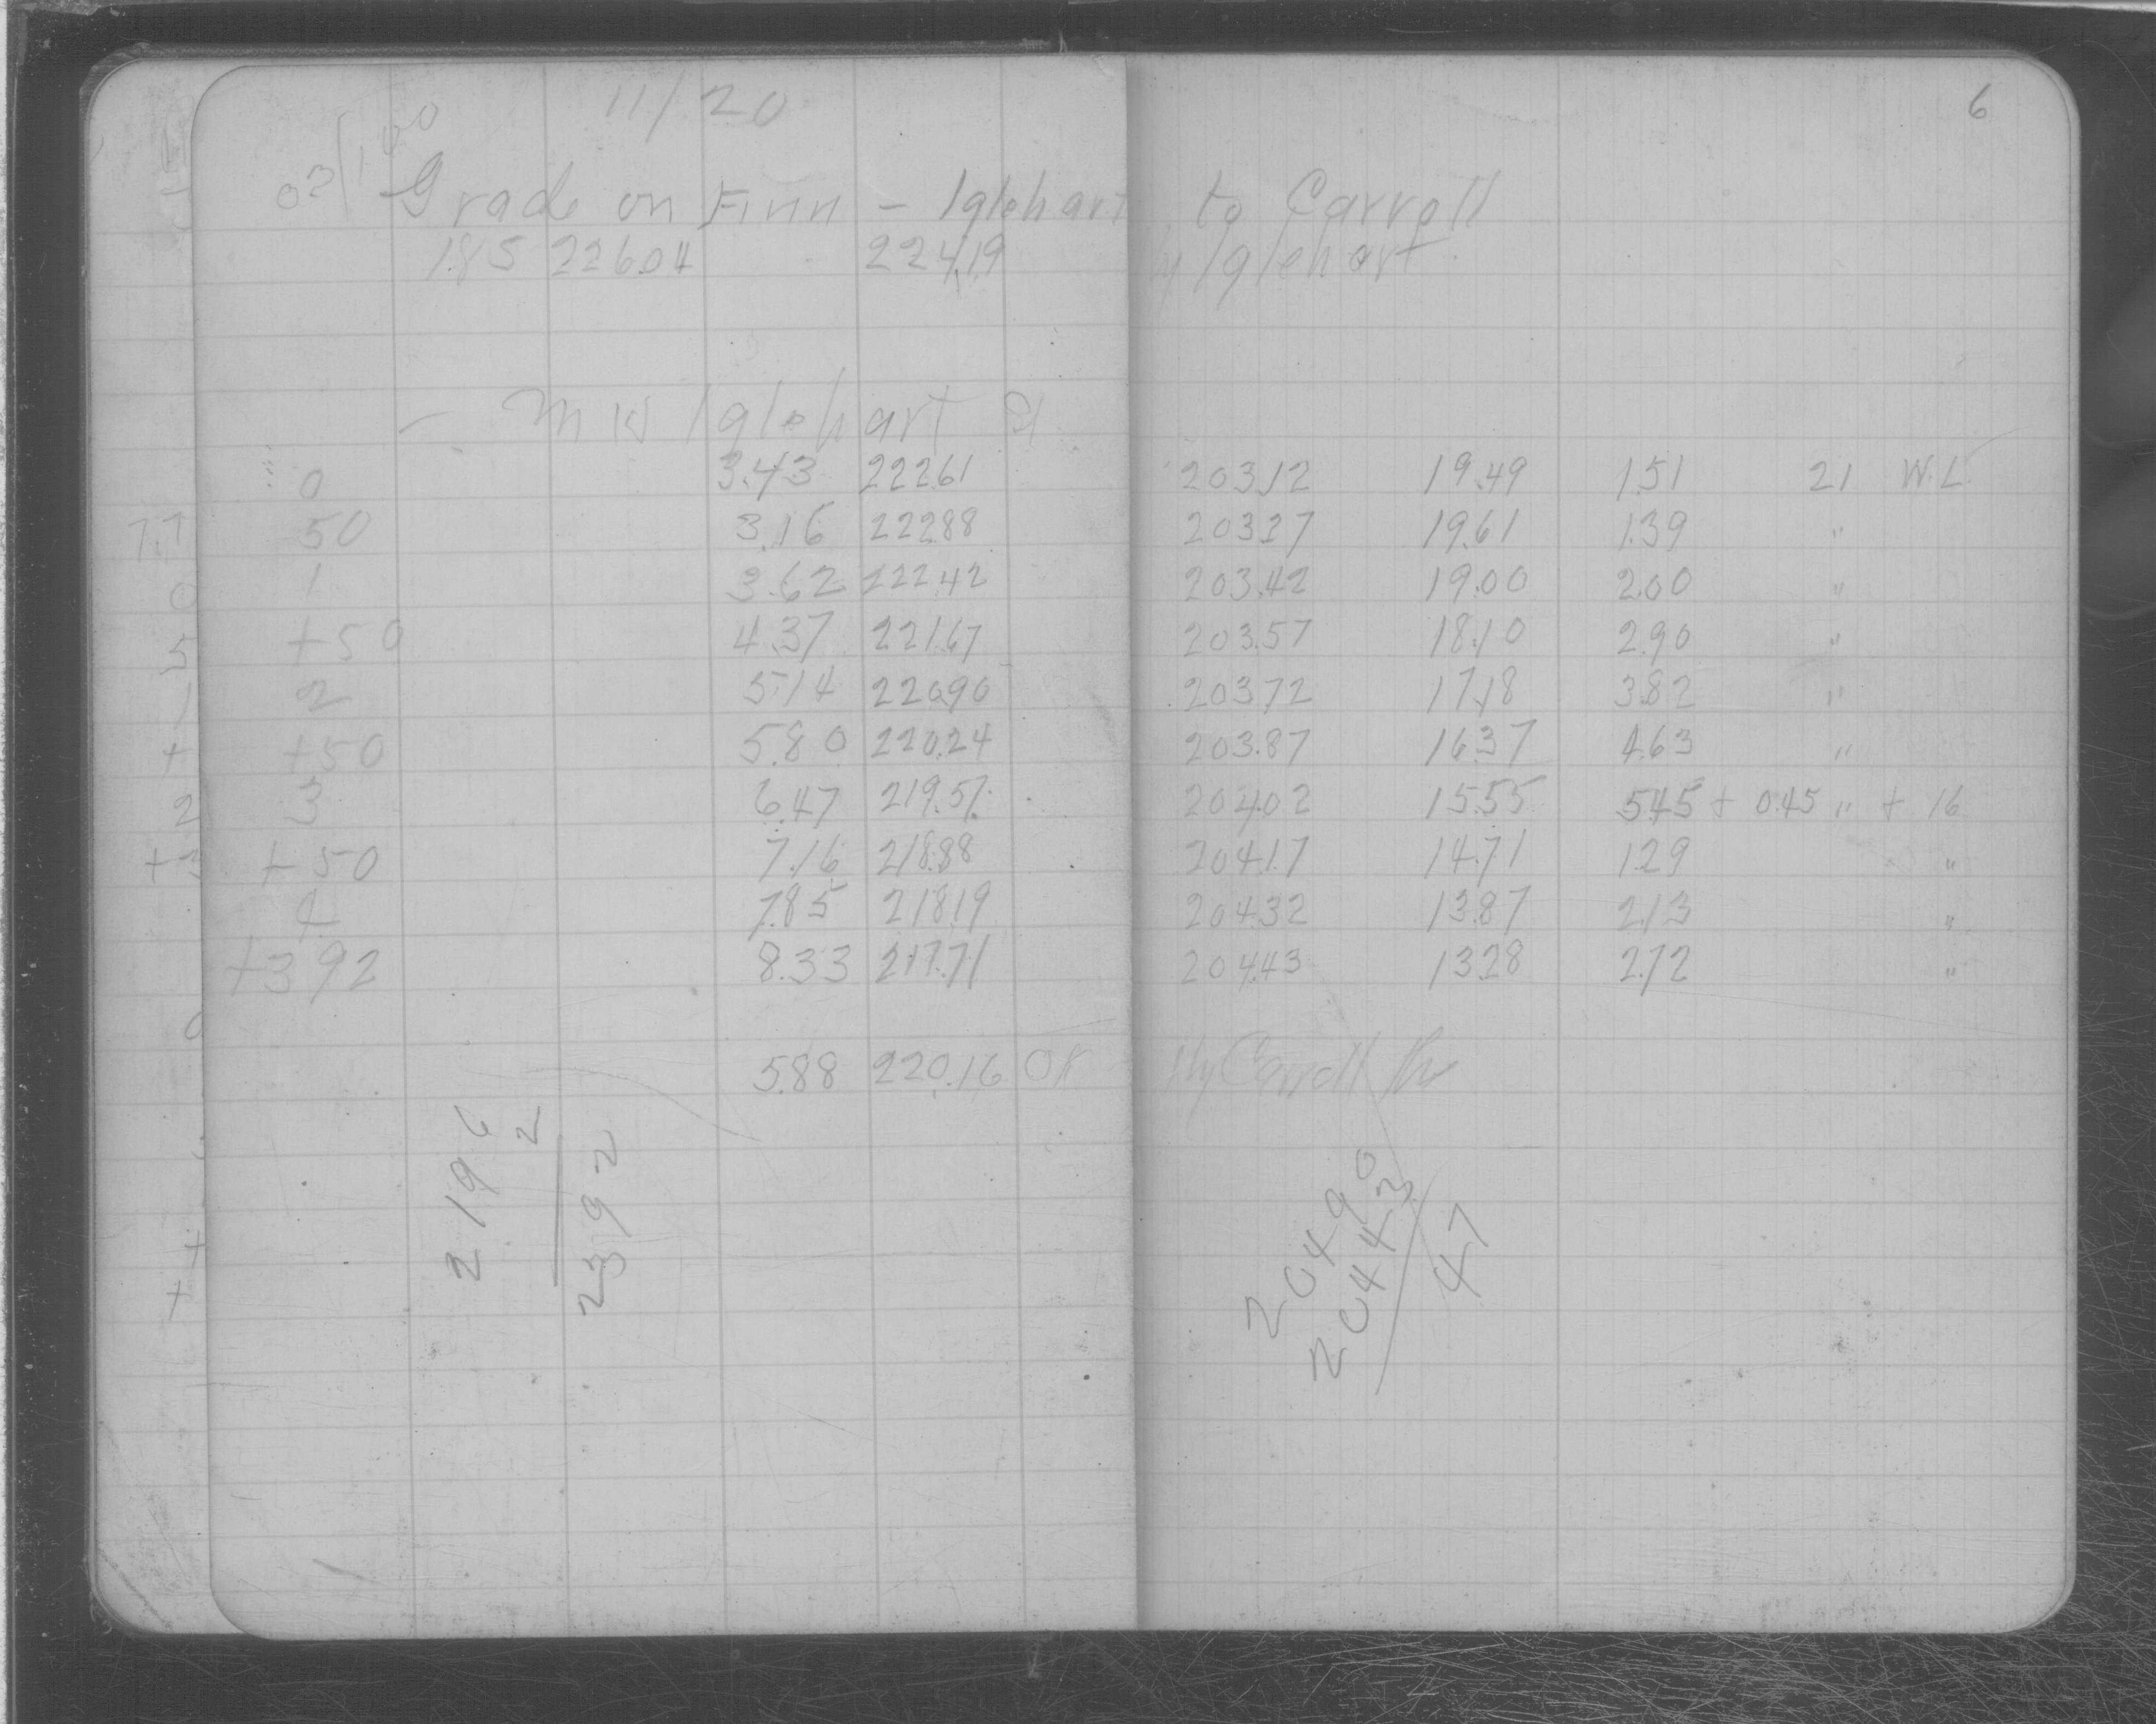 6
11/20
03/1.00
Grade on Finn - Iglehart to Carroll
1.85 226.04 224.19 Hy Iglehart
M W Iglehart St
0 3.43 222.61 203.12 19.49 1.51 21 W.L.
50 3.16 222.88 203.27 19.61 1.39 "
1 3.62 222.42 203.42 19.00 2.00 "
+50 4.37 221.67 203.57 18.10 2.90 "
2 5.14 220.90 203.72 17.18 3.82 "
+50 5.80 220.24 203.87 16.37 4.63 "
3 6.47 219.57 204.02 15.55 5.45 + 0.45 " + 16
+50 7.16 218.88 204.17 14.71 1.29 "
4 7.85 218.19 204.32 13.87 2.13 "
+392 8.33 217.71 204.43 13.28 2.72 "
5.88 220.16 OK Hy Carroll
2196
2
2392
20490
20443
47